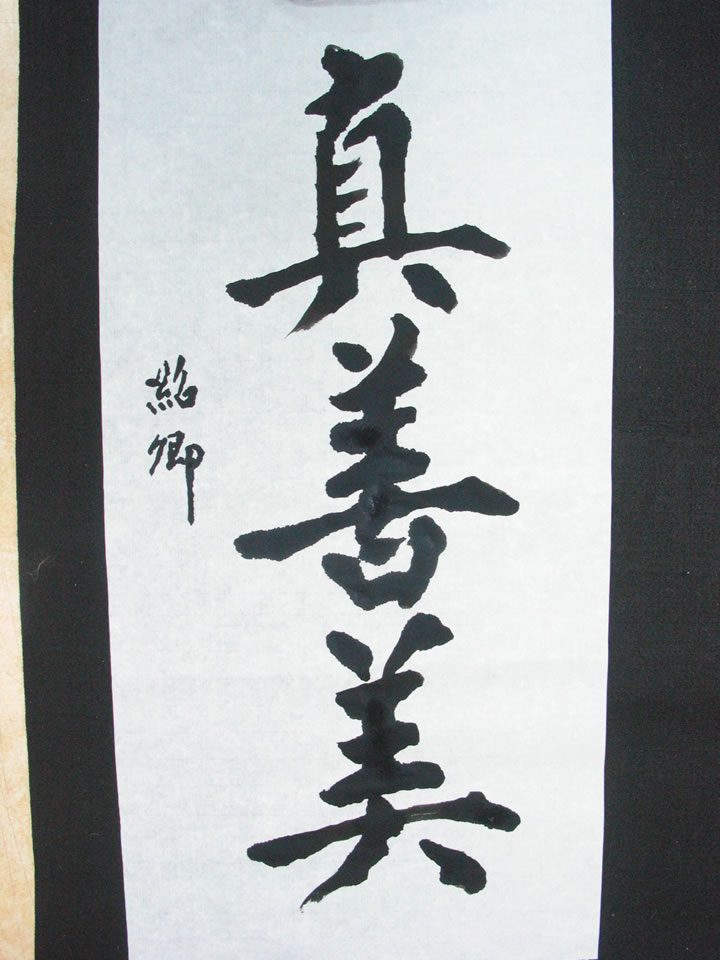 真善美
紹卿